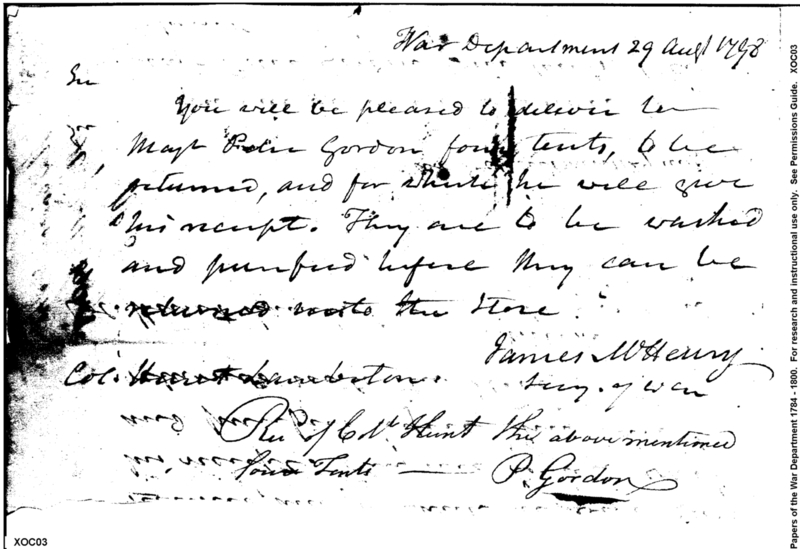 War Department 29 Augt 1798
Sir
You will be pleased to deliver to
Majr Peter Gordon four tents, to be
returned, and for which he will give
his receipt. They are to be washed
and purified before they can be
returned into the Store.
James McHenry
Col. Hunt Lamberton. Secy. of War
Rec of Colo. Hunt the above mentioned
four Tents — P. Gordon
XOC03
Papers of the War Department 1784 - 1800. For research and instructional use only. See Permissions Guide. XOC03